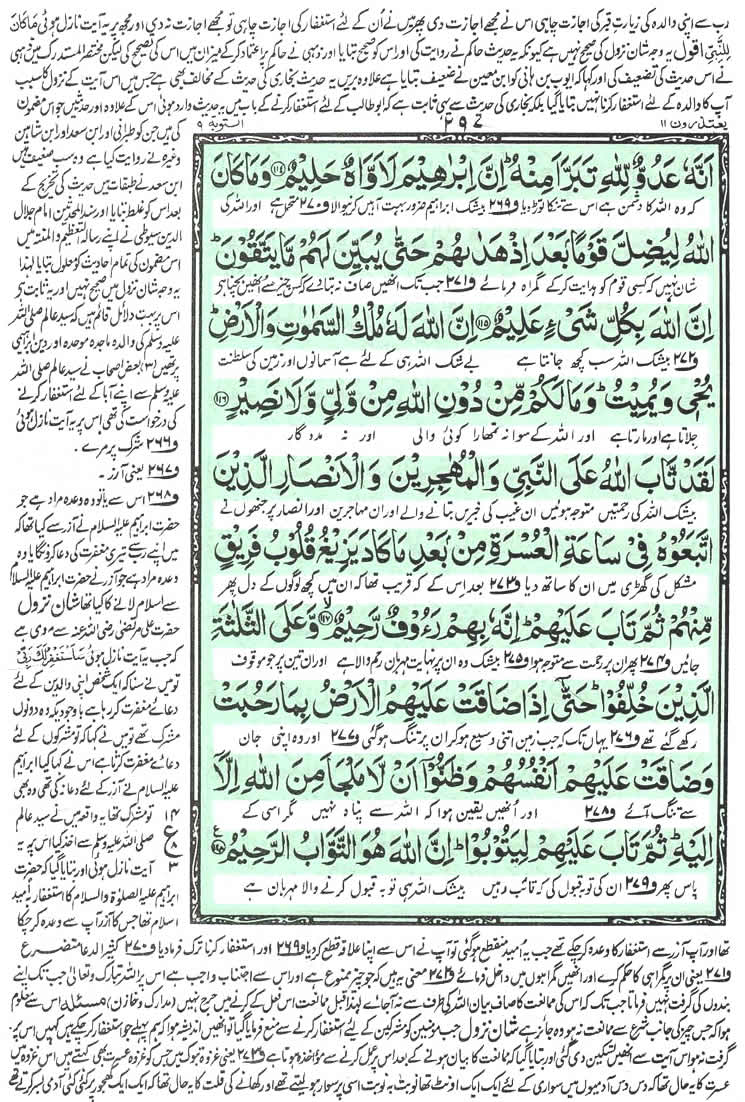 رب سے اپنی والدہ کی زیارتِ قبر کی اجازت چاہی اس نے مجھے اجازت دی پھر میں نے اُن کے لئے استغفار کی اجازت چاہی تو مجھے اجازت نہ دی اور مجھ پر یہ آیت نازل ہوئی مَاكَانَ
لِلنَّبِيِّ اقول یہ وجہ شانِ نزول کی صحیح نہیں ہے کیونکہ یہ حدیث حاکم نے روایت کی اور اس کو صحیح بتایا اور ذہبی نے حاکم پر اعتماد کر کے میزان میں اس کی تصحیح کی لیکن مختصر المستدرک میں ذہبی
نے اس حدیث کی تضعیف کی اور کہا کہ ایوب بن ہانی کو ابن معین نے ضعیف بتایا ہے علاوہ بریں یہ حدیث بخاری کی حدیث کے مخالف بھی ہے جس میں اس آیت کے نزول کا سبب
آپ کا والدہ کے لئے استغفار کرنا نہیں بتایا گیا بلکہ بخاری کی حدیث سے یہی ثابت ہے کہ ابوطالب کے لئے استغفار کرنے کے باب میں یہ حدیث وارد ہوئی اس کے علاوہ اور حدیثیں جو اس مضمون
یعتذرون ۱۱
۲۹۷
التوبة ۹
اَنَّهٗ عَدُوٌّ لِّلّٰهِ تَبَرَّاَ مِنْهُؕ اِنَّ اِبْرٰهِیْمَ لَاَوَّاهٌ حَلِیْمٌ ﴿۱۱۴﴾ وَ مَا كَانَ
کہ وہ اللہ کا دشمن ہے اس سے تنکا توڑ دیا ف۲۶۹ بیشک ابراہیم ضرور بہت آہیں کرنیوالا ف۲۷۰ متحمل ہے اور اللہ کی
اللّٰهُ لِیُضِلَّ قَوْمًۢا بَعْدَ اِذْ هَدٰىهُمْ حَتّٰى یُبَیِّنَ لَهُمْ مَّا یَتَّقُوْنَؕ
شان نہیں کہ کسی قوم کو ہدایت کر کے گمراہ فرمائے ف۲۷۱ جب تک انھیں صاف نہ بتا دے کس چیز سے انھیں بچنا چاہیے
اِنَّ اللّٰهَ بِكُلِّ شَیْءٍ عَلِیْمٌ ﴿۱۱۵﴾ اِنَّ اللّٰهَ لَهٗ مُلْكُ السَّمٰوٰتِ وَ الْاَرْضِؕ
ف۲۷۲ بیشک اللہ سب کچھ جانتا ہے بے شک اللہ ہی کے لئے ہے آسمانوں اور زمین کی سلطنت
یُحْیٖ وَ یُمِیْتُؕ وَ مَا لَكُمْ مِّنْ دُوْنِ اللّٰهِ مِنْ وَّلِیٍّ وَّ لَا نَصِیْرٍ ﴿۱۱۶﴾
جِلاتا ہے اور مارتا ہے اور اللہ کے سوا نہ تمھارا کوئی والی اور نہ مدد گار
لَقَدْ تَّابَ اللّٰهُ عَلَى النَّبِیِّ وَ الْمُهٰجِرِیْنَ وَ الْاَنْصَارِ الَّذِیْنَ
بیشک اللہ کی رحمتیں متوجہ ہوئیں ان غیب کی خبریں بتانے والے اور ان مہاجرین اور انصار پر جنھوں نے
اتَّبَعُوْهُ فِیْ سَاعَةِ الْعُسْرَةِ مِنْۢ بَعْدِ مَا كَادَ یَزِیْغُ قُلُوْبُ فَرِیْقٍ
مشکل کی گھڑی میں ان کا ساتھ دیا ف۲۷۳ بعد اس کے کہ قریب تھا کہ ان میں کچھ لوگوں کے دل پھر
مِّنْهُمْ ثُمَّ تَابَ عَلَیْهِمْؕ اِنَّهٗ بِهِمْ رَءُوْفٌ رَّحِیْمٌ ﴿۱۱۷﴾ وَّ عَلَى الثَّلٰثَةِ
جائیں ف۲۷۴ پھر ان پر رحمت سے متوجہ ہوا ف۲۷۵ بیشک وہ ان پر نہایت مہربان رحم والا ہے اور ان تین پر جو موقوف
الَّذِیْنَ خُلِّفُوْاؕ حَتّٰۤى اِذَا ضَاقَتْ عَلَیْهِمُ الْاَرْضُ بِمَا رَحُبَتْ
رکھے گئے تھے ف۲۷۶ یہاں تک کہ جب زمین اتنی وسیع ہو کر ان پر تنگ ہو گئی ف۲۷۷ اور وہ اپنی جان
وَ ضَاقَتْ عَلَیْهِمْ اَنْفُسُهُمْ وَ ظَنُّوْۤا اَنْ لَّا مَلْجَاَ مِنَ اللّٰهِ اِلَّاۤ
سے تنگ آئے ف۲۷۸ اور انھیں یقین ہوا کہ اللہ سے پناہ نہیں مگر اسی کے
اِلَیْهِؕ ثُمَّ تَابَ عَلَیْهِمْ لِیَتُوْبُوْاؕ اِنَّ اللّٰهَ هُوَ التَّوَّابُ الرَّحِیْمُ ﴿۱۱۸﴾
پاس پھر ف۲۷۹ ان کی توبہ قبول کی کہ تائب رہیں بیشک اللہ ہی توبہ قبول کرنے والا مہربان ہے
کی ہیں جن کو طبرانی اور ابن سعد اور ابن شاہین
وغیرہ نے روایت کیا ہے وہ سب ضعیف ہیں
ابن سعد نے طبقات میں حدیث کی تخریج کے
بعد اس کو غلط بتایا اور سند المحدثین امام جلال
الدین سیوطی نے اپنے رسالہ التعظیم والمنۃ میں
اس مضمون کی تمام احادیث کو معلول بتایا لہٰذا
یہ وجہ شانِ نزول میں صحیح نہیں اور یہ ثابت ہے
اس پر بہت دلائل قائم ہیں کہ سید عالم صلی اللہ
علیہ وسلم کی والدہ ماجدہ موحدہ اور دین ابراہیمی
پر تھیں (۳) بعض اصحاب نے سید عالم صلی اللہ
علیہ وسلم سے اپنے آبا کے لئے استغفار کرنے
کی درخواست کی تھی اس پر یہ آیت نازل ہوئی
ف۲۶۶ شرک پر مرے۔
ف۲۶۷ یعنی آزر۔
ف۲۶۸ اس سے یا تو وہ وعدہ مراد ہے جو
حضرت ابراہیم علیہ السلام نے آزر سے کیا تھا کہ
میں اپنے رب سے تیری مغفرت کی دعا کرونگا یا وہ
وعدہ مراد ہے جو آزر نے حضرت ابراہیم علیہ السلام
سے اسلام لانے کا کیا تھا شانِ نزول
حضرت علی مرتضیٰ رضی اللہ عنہ سے مروی ہے
کہ جب یہ آیت نازل ہوئی سَاَسْتَغْفِرُ لَكَ رَبِّیْ
تو میں نے سنا کہ ایک شخص اپنے والدین کے لئے
دعائے مغفرت کر رہا ہے باوجودیکہ وہ دونوں
مشرک تھے تو میں نے کہا کہ تو مشرکوں کے لئے
دعائے مغفرت کرتا ہے اس نے کہا کیا ابراہیم
علیہ السلام نے آزر کے لئے دعا نہ کی تھی وہ بھی
تو مشرک تھا یہ واقعہ میں نے سید عالم
صلی اللہ علیہ وسلم سے ذکر کیا اس پر یہ
آیت نازل ہوئی اور بتایا گیا کہ حضرت
ابراہیم علیہ الصلوٰۃ والسلام کا استغفار بہ امید
اسلام تھا جس کا آزر آپ سے وعدہ کر چکا
۱۴
ع
۸
۳
تھا اور آپ آزر سے استغفار کا وعدہ کر چکے تھے جب یہ امید منقطع ہو گئی تو آپ نے اس سے اپنا علاقہ قطع کر دیا ف۲۶۹ اور استغفار کرنا ترک فرما دیا ف۲۷۰ کثیر الدعا متضرع
ف۲۷۱ یعنی ان پر گمراہی کا حکم کرے اور انھیں گمراہوں میں داخل فرمائے ف۲۷۲ معنی یہ ہیں کہ جو چیز ممنوع ہے اور اس سے اجتناب واجب ہے اس پر اللہ تبارک وتعالیٰ جب تک اپنے
بندوں کی گرفت نہیں فرماتا جب تک کہ اس کی ممانعت کا صاف بیان اللہ کی طرف سے نہ آ جائے لہٰذا قبل ممانعت اس فعل کے کرنے میں حرج نہیں (مدارک وخازن) مسئلہ اس سے معلوم
ہوا کہ جس چیز کی جانب شرع سے ممانعت نہ ہو وہ جائز ہے شانِ نزول جب مومنین کو مشرکین کے لئے استغفار کرنے سے منع فرمایا گیا تو انھیں اندیشہ ہوا کہ ہم پہلے جو استغفار کر چکے ہیں کہیں اس پر
گرفت نہ ہو اس آیت سے انھیں تسکین دی گئی اور بتایا گیا کہ ممانعت کا بیان ہونے کے بعد اس پر عمل کرنے سے مؤاخذہ ہوتا ہے ف۲۷۳ یعنی غزوہ تبوک میں جس کو غزوہ عسرت بھی کہتے ہیں اس غزوہ میں
عسرت کا یہ حال تھا کہ دس دس آدمیوں میں سواری کے لئے ایک ایک اونٹ تھا نوبت بہ نوبت اسی پر سوار ہو لیتے تھے اور کھانے کی قلت کا یہ حال تھا کہ ایک ایک کھجور پر کئی کئی آدمی بسر کرتے تھے